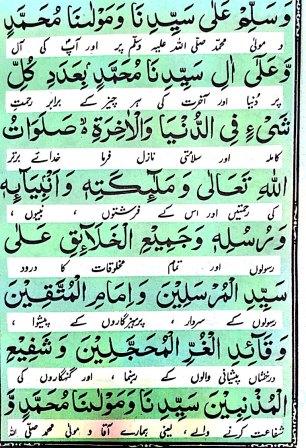 وَسَلِّمْ عَلٰی سَيِّدِنَا وَمَوْلٰىنَا مُحَمَّدٍ
و مولیٰ محمد صلی اللہ علیہ وسلم پر اور آپ کی آل
وَّعَلٰٓی اٰلِ سَيِّدِنَا مُحَمَّدٍ بِعَدَدِ كُلِّ
پر دنیا اور آخرت کی ہر چیز کے برابر رحمتِ
شَیْءٍ فِی الدُّنْيَا وَالْاٰخِرَةِ ۞ صَلَوَاتُ
کاملہ اور سلامتی نازل فرما خدائے برتر
اللهِ تَعَالٰی وَمَلٰٓئِكَتِهٖ وَاَنْۢبِيَآئِهٖ
کی رحمتیں اور اس کے فرشتوں ، نبیوں ،
وَرُسُلِهٖ وَجَمِيْعِ الْخَلَآئِقِ عَلٰی
رسولوں اور تمام مخلوقات کا درود
سَيِّدِ الْمُرْسَلِيْنَ وَاِمَامِ الْمُتَّقِيْنَ
رسولوں کے سردار ، پرہیزگاروں کے پیشوا ،
وَقَآئِدِ الْغُرِّ الْمُحَجَّلِيْنَ وَشَفِيْعِ
درخشاں پیشانی والوں کے رہنما ، اور گنہگاروں کی
الْمُذْنِبِيْنَ سَيِّدِنَا وَمَوْلٰىنَا مُحَمَّدٍ وَّ
شفاعت کرنے والے ، یعنی ہمارے آقا و مولیٰ محمد صلی اللہ